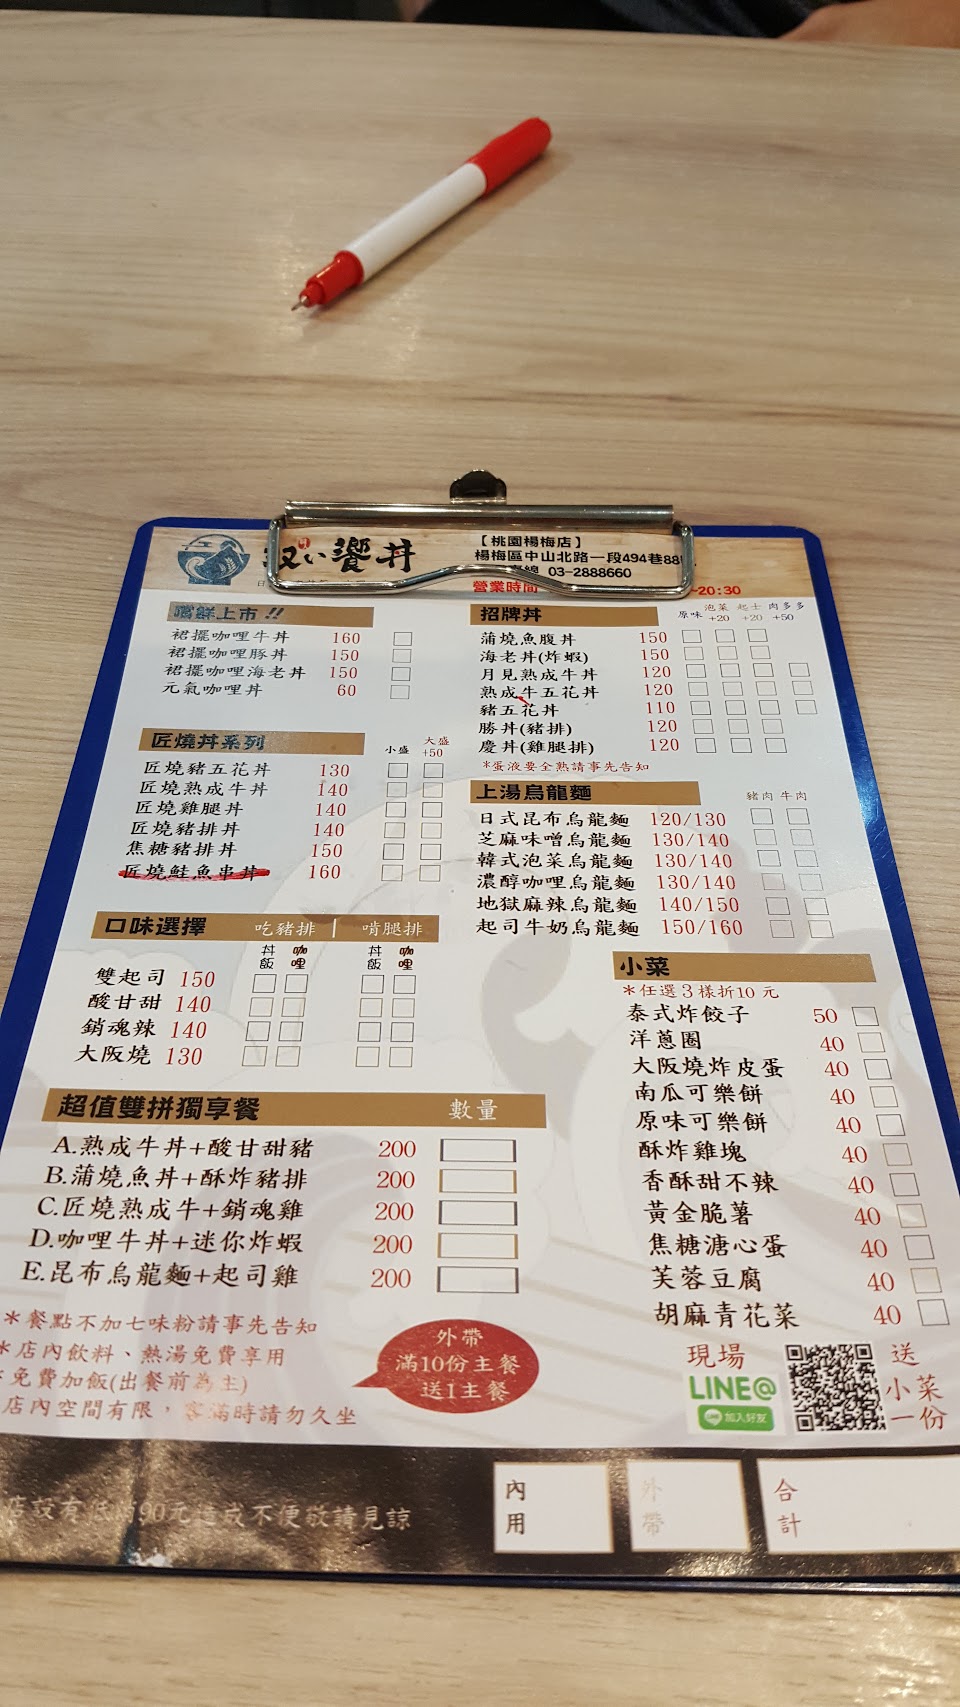 い饗丼
【桃園楊梅店】
楊梅區中山北路一段494巷88
線 03-2888660
營業時間
-20:30
嚐鮮上市!!
裙擺咖哩牛丼 160
裙擺咖哩豚丼 150
裙擺咖哩海老丼 150
元氣咖哩丼 60
匠燒丼系列 小盛 大盛+50
匠燒豬五花丼 130
匠燒熟成牛丼 140
匠燒雞腿丼 140
匠燒豬排丼 140
焦糖豬排丼 150
匠燒鮭魚串丼 160
口味選擇 吃豬排 | 啃腿排
丼飯 咖哩 丼飯 咖哩
雙起司 150
酸甘甜 140
銷魂辣 140
大阪燒 130
超值雙拼獨享餐 數量
A.熟成牛丼+酸甘甜豬 200
B.蒲燒魚丼+酥炸豬排 200
C.匠燒熟成牛+銷魂雞 200
D.咖哩牛丼+迷你炸蝦 200
E.昆布烏龍麵+起司雞 200
*餐點不加七味粉請事先告知
*店內飲料、熱湯免費享用
*免費加飯(出餐前為主)
店內空間有限，客滿時請勿久坐
外帶
滿10份主餐
送1主餐
招牌丼 原味 泡菜+20 起士+20 肉多多+50
蒲燒魚腹丼 150
海老丼(炸蝦) 150
月見熟成牛丼 120
熟成牛五花丼 120
豬五花丼 110
勝丼(豬排) 120
慶丼(雞腿排) 120
*蛋液要全熟請事先告知
上湯烏龍麵 豬肉 牛肉
日式昆布烏龍麵 120/130
芝麻味噌烏龍麵 130/140
韓式泡菜烏龍麵 130/140
濃醇咖哩烏龍麵 130/140
地獄麻辣烏龍麵 140/150
起司牛奶烏龍麵 150/160
小菜
*任選3樣折10元
泰式炸餃子 50
洋蔥圈 40
大阪燒炸皮蛋 40
南瓜可樂餅 40
原味可樂餅 40
酥炸雞塊 40
香酥甜不辣 40
黃金脆薯 40
焦糖溏心蛋 40
芙蓉豆腐 40
胡麻青花菜 40
現場
LINE@
LINE 加入好友
送
小菜
一份
店設有低消90元造成不便敬請見諒
內用
外帶
合計